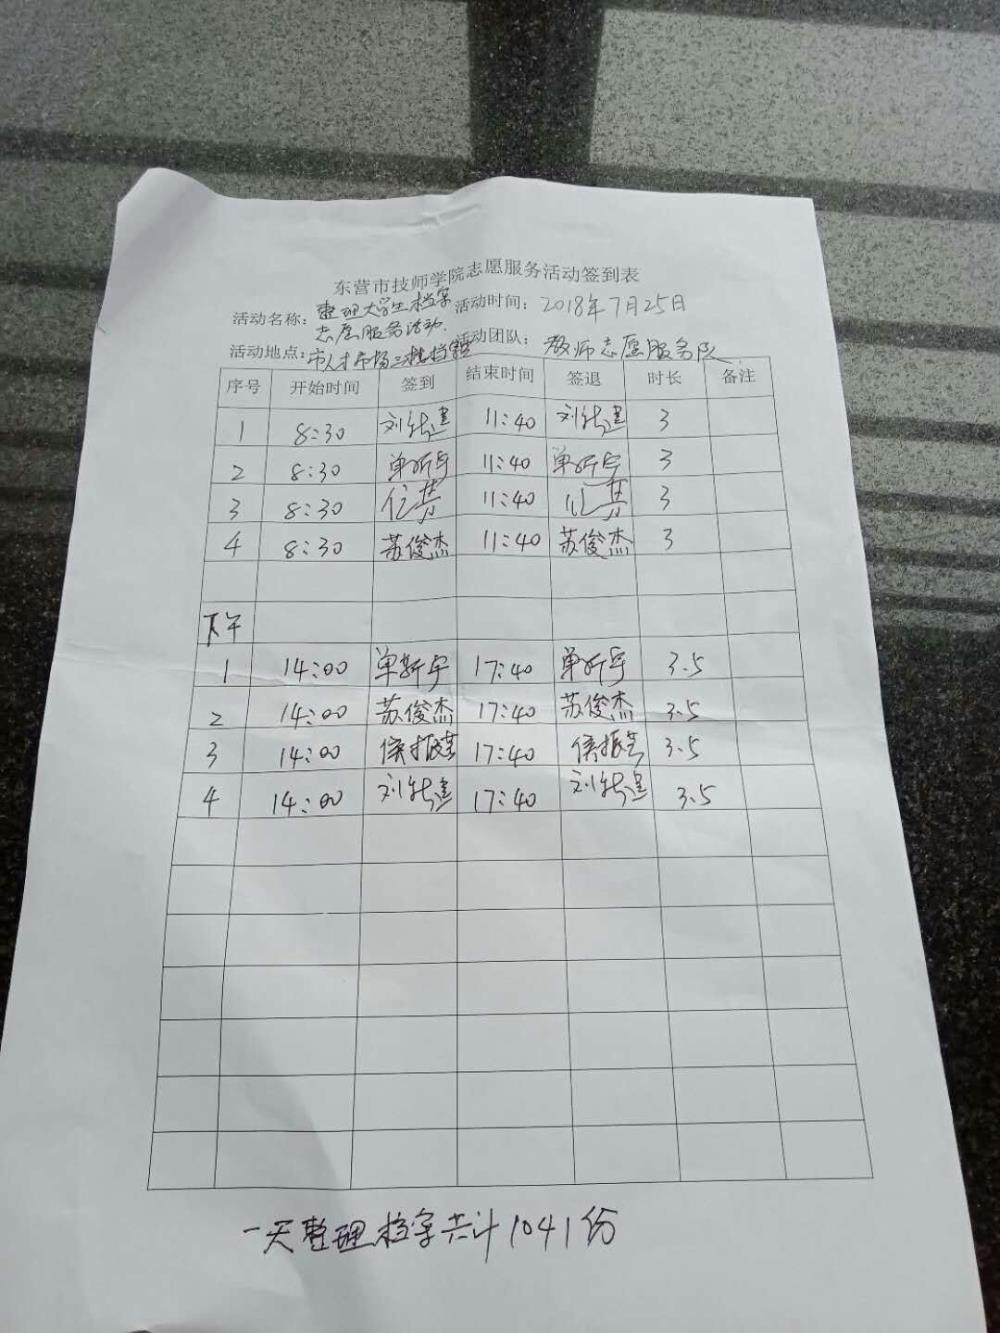 东营市技师学院志愿服务活动签到表
活动名称：整理大学生档案志愿服务活动 活动时间：2018年7月25日
活动地点：市人才市场 活动团队：教师志愿服务队
序号 开始时间 签到 结束时间 签退 时长 备注
1 8:30 刘 11:40 刘 3
2 8:30 单新宇 11:40 单新宇 3
3 8:30 11:40 3
4 8:30 苏俊杰 11:40 苏俊杰 3
下午
1 14:00 单新宇 17:40 单新宇 3.5
2 14:00 苏俊杰 17:40 苏俊杰 3.5
3 14:00 侯振 17:40 侯振 3.5
4 14:00 刘 17:40 刘 3.5
一天整理档案共计1041份